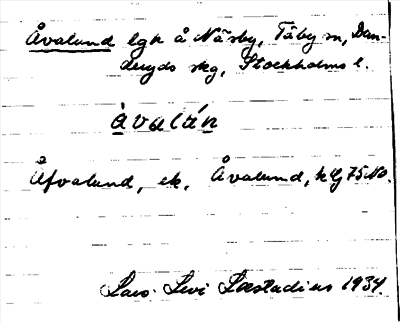 Åvalund lgh å Näsby, Täby sn, Dan-
deryds skg, Stockholms l.
àvalán
Åfvalund, ek. Åvalund, hlg 75 NO.
Lars Levi Læstadius 1934.